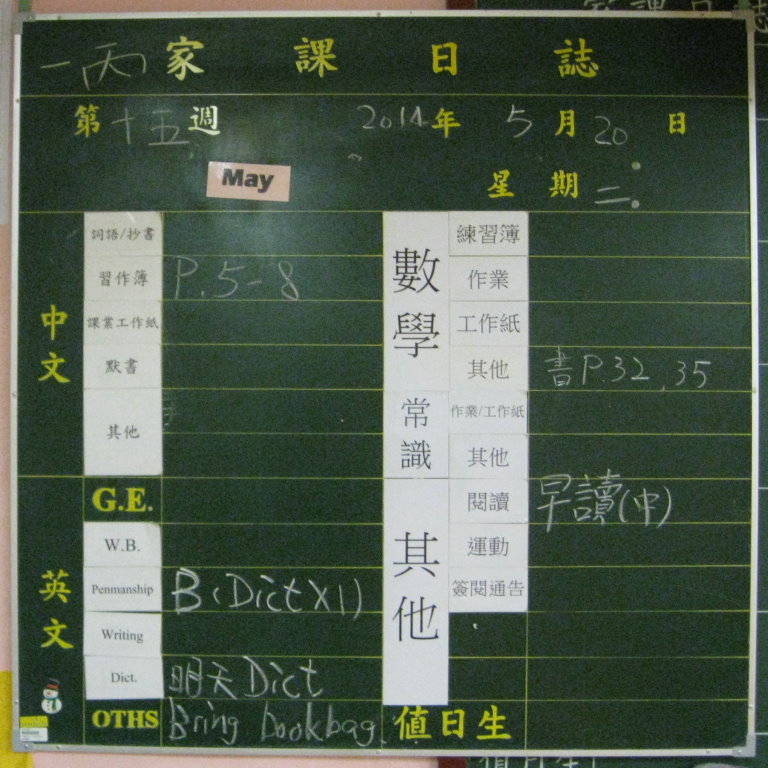 一丙 家課日誌
第十五週 2014年 5月20日
May 星期二
中文
詞語/抄書
習作簿 P.5-8
課業工作紙
默書
其他
英文
G.E.
W.B.
Penmanship B (Dict X1)
Writing
Dict. 明天 Dict
OTHS Bring bookbag.
數學
練習簿
作業
工作紙
其他 書P.32,35
常識
作業/工作紙
其他
其他
閱讀 早讀(中)
運動
簽閱通告
值日生